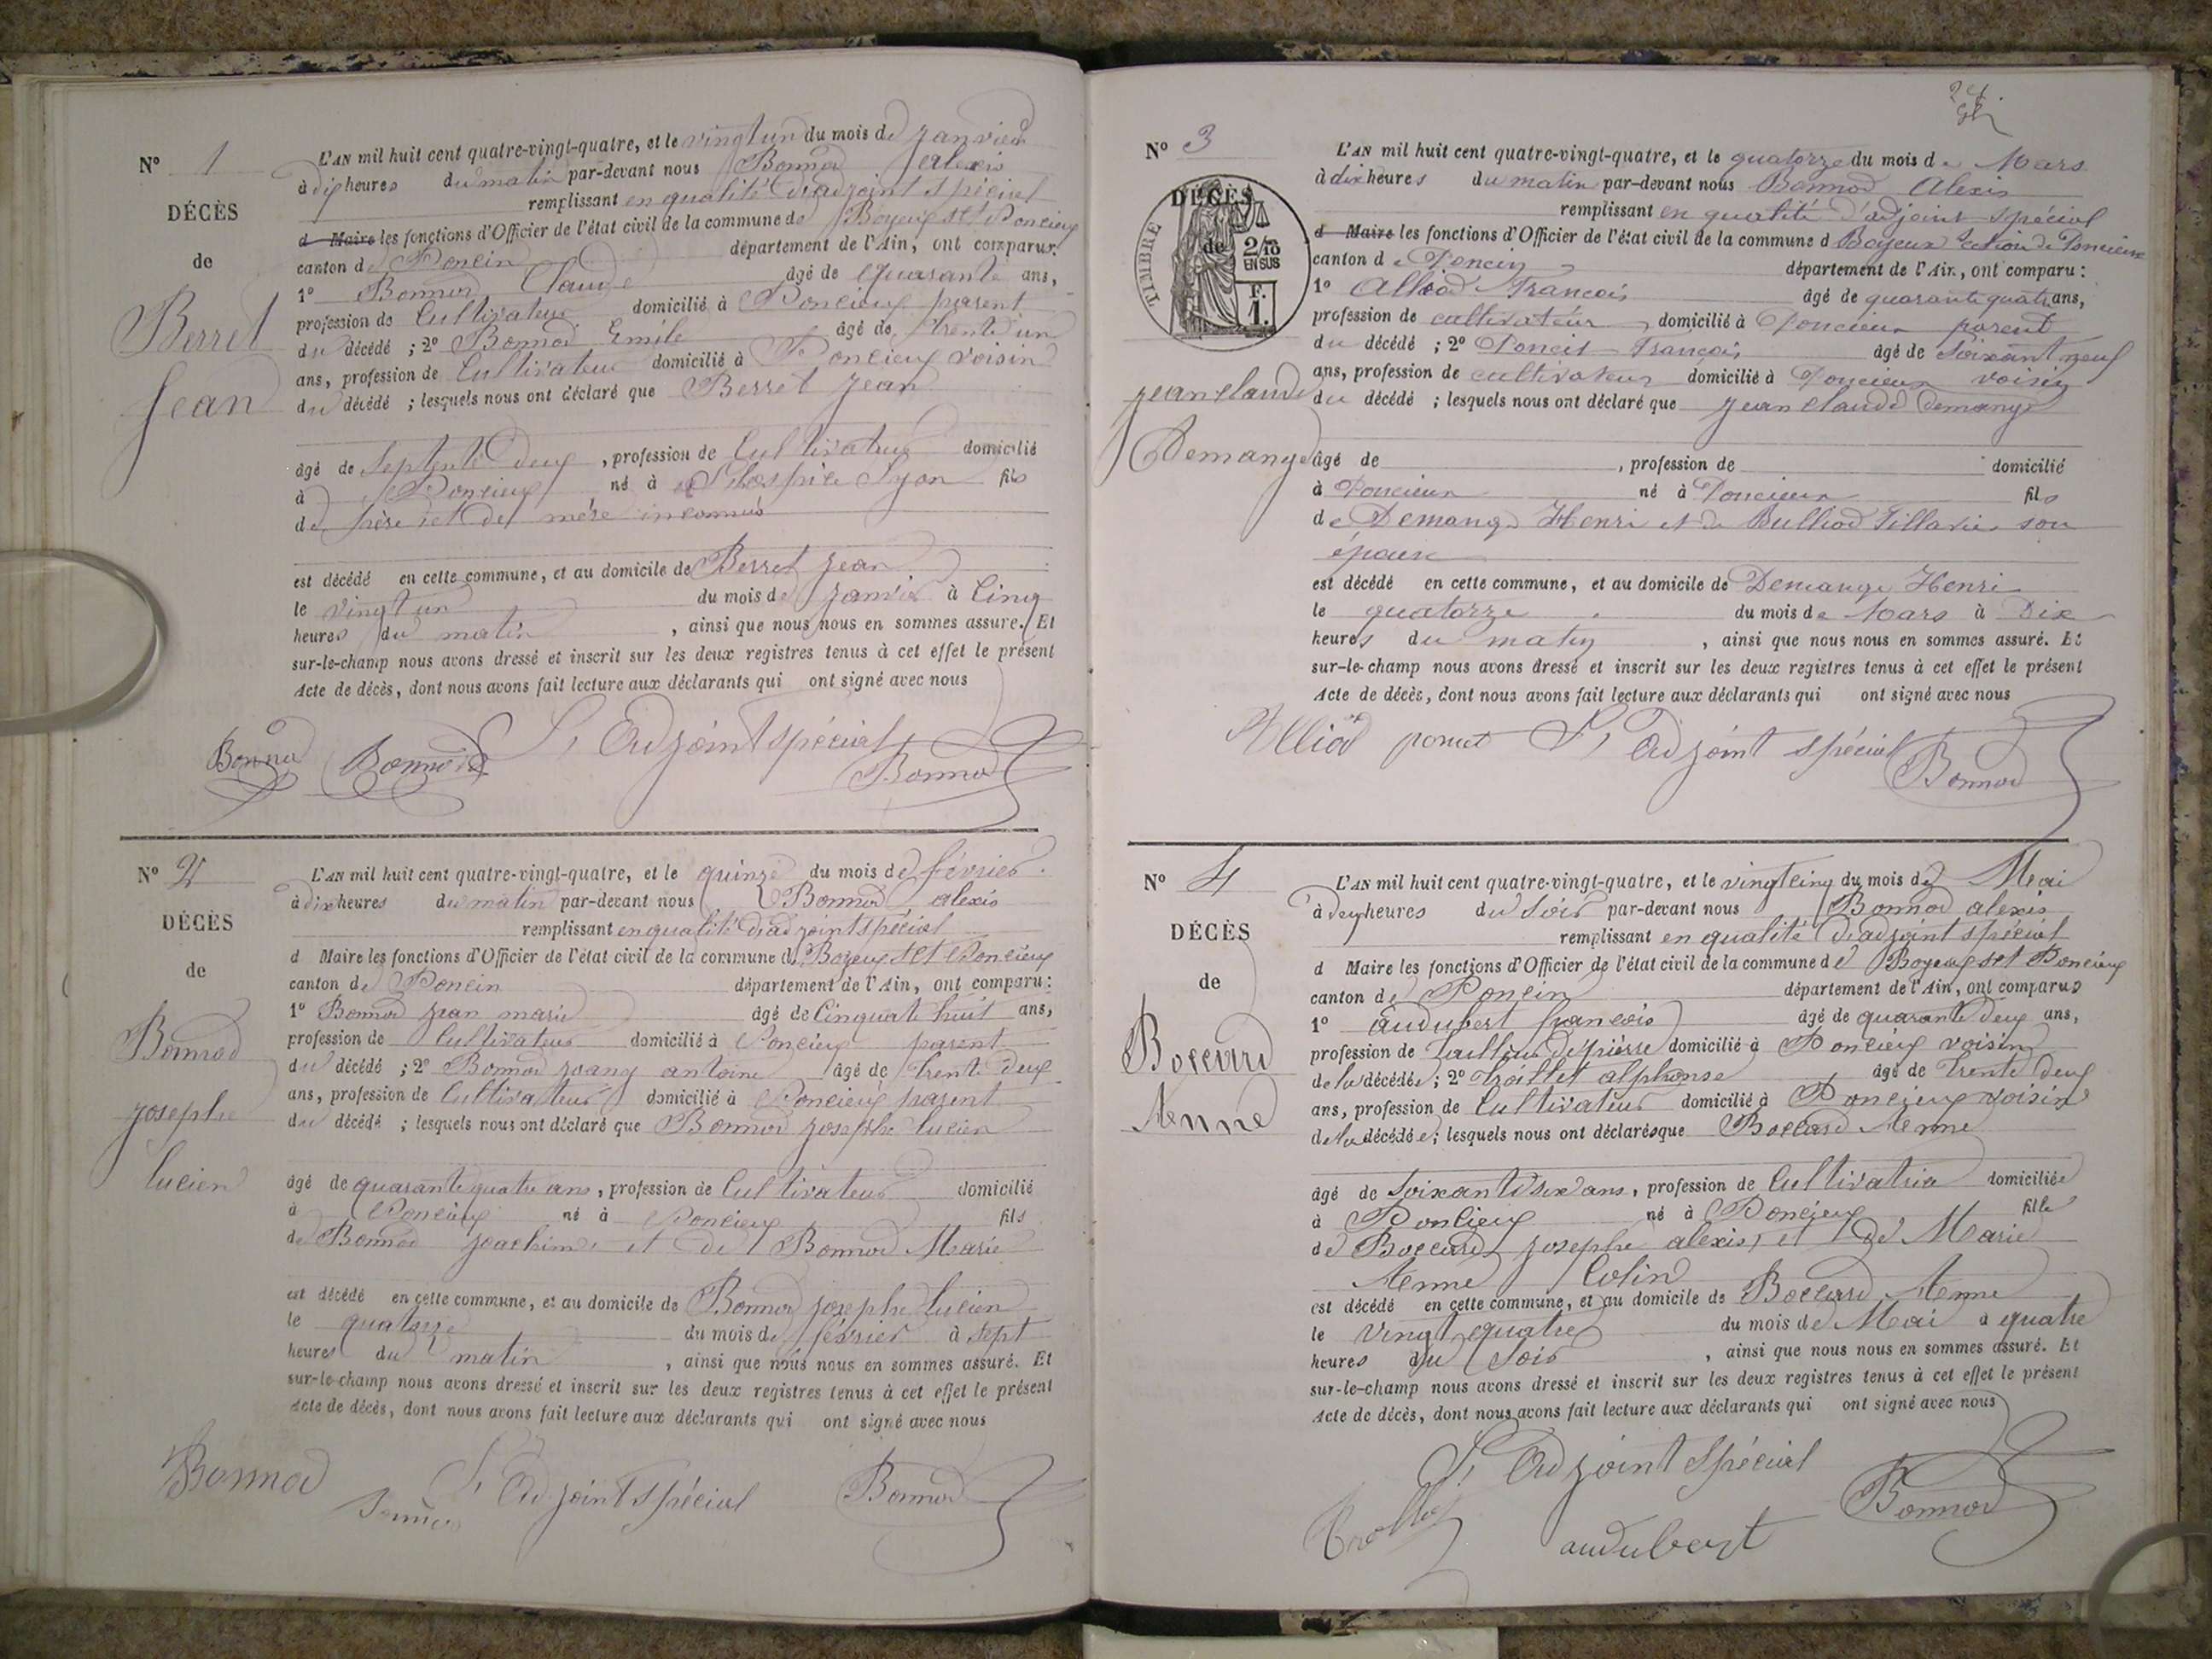 N° 1
DÉCÈS
de
Berret
Jean
L'AN mil huit cent quatre-vingt-quatre, et le vingt un du mois de janvier
à dix heures du matin par-devant nous Bonnod Alexis
remplissant en qualité d'adjoint spécial
d Maire les fonctions d'Officier de l'état civil de la commune de Boyeux St Poncieux
canton de Poncin département de l'Ain, ont comparu:
1° Bonnod Claude âgé de quarante ans,
profession de Cultivateur domicilié à Poncieux parent
du décédé ; 2° Bonnod Emile âgé de trente un
ans, profession de Cultivateur domicilié à Poncieux voisin
du décédé ; lesquels nous ont déclaré que Berret Jean
âgé de septente deux , profession de Cultivateur domicilié
à Poncieux né à Lyon fils
de père et de mère inconnus
est décédé en cette commune, et au domicile de Berret Jean
le vingt un du mois de janvier à Cinq
heures du matin , ainsi que nous nous en sommes assuré. Et
sur-le-champ nous avons dressé et inscrit sur les deux registres tenus à cet effet le présent
Acte de décès, dont nous avons fait lecture aux déclarants qui ont signé avec nous
Bonnod Bonnod L'Adjoint spécial
Bonnod
N° 2
DÉCÈS
de
Bonnod
josephe
lucien
L'AN mil huit cent quatre-vingt-quatre, et le quinze du mois de février
à dix heures du matin par-devant nous Bonnod alexis
remplissant en qualité d'adjoint spécial
d Maire les fonctions d'Officier de l'état civil de la commune de Boyeux St Poncieux
canton de Poncin département de l'Ain, ont comparu:
1° Bonnod jean marie âgé de Cinquate huit ans,
profession de Cultivateur domicilié à Poncieux parent
du décédé ; 2° Bonnod joany antoine âgé de trente deux
ans, profession de Cultivateur domicilié à Poncieux parent
du décédé ; lesquels nous ont déclaré que Bonnod josephe lucien
âgé de quarante quatre ans, profession de Cultivateur domicilié
à Poncieux né à Poncieux fils
de Bonnod joachim et de Bonnod Marie
est décédé en cette commune, et au domicile de Bonnod josephe lucien
le quatorze du mois de février à sept
heures du matin , ainsi que nous nous en sommes assuré. Et
sur-le-champ nous avons dressé et inscrit sur les deux registres tenus à cet effet le présent
Acte de décès, dont nous avons fait lecture aux déclarants qui ont signé avec nous
Bonnod L'Adjoint spécial Bonnod
N° 3
DÉCÈS
de
TIMBRE
2/10
EN SUS
F.
1.
jean claude
Demange
L'AN mil huit cent quatre-vingt-quatre, et le quatorze du mois de Mars
à dix heures du matin par-devant nous Bonnod Alexis
remplissant en qualité d'adjoint spécial
d Maire les fonctions d'Officier de l'état civil de la commune d Boyeux section de Poncieux
canton de Poncin département de l'Ain, ont comparu :
1° Alliod Francois âgé de quarante quatre ans,
profession de cultivateur domicilié à Poncieux parent
du décédé ; 2° Poncet Francois âgé de soixant neuf
ans, profession de cultivateur domicilié à Poncieux voisin
du décédé ; lesquels nous ont déclaré que jean claude demange
âgé de , profession de domicilié
à Poncieux né à Poncieux fils
de Demange Henri et de Bulliod Sillavie son
épouse
est décédé en cette commune, et au domicile de Demange Henri
le quatorze du mois de Mars à Dix
heures du matin , ainsi que nous nous en sommes assuré. Et
sur-le-champ nous avons dressé et inscrit sur les deux registres tenus à cet effet le présent
Acte de décès, dont nous avons fait lecture aux déclarants qui ont signé avec nous
Alliod L'Adjoint spécial
Bonnod
N° 4
DÉCÈS
de
Boccard
Anne
L'AN mil huit cent quatre-vingt-quatre, et le vingt cinq du mois de Mai
à deux heures du soir par-devant nous Bonnod alexis
remplissant en qualité d'adjoint spécial
d Maire les fonctions d'Officier de l'état civil de la commune de Boyeux St Poncieux
canton de Poncin département de l'Ain, ont comparus
1° audubert francois âgé de quarante deux ans,
profession de Tailleur de pierre domicilié à Poncieux voisin
de la décédée ; 2° trollet alphonse âgé de trente deux
ans, profession de Cultivateur domicilié à Poncieux voisin
de la décédée ; lesquels nous ont déclarés que Boccard Anne
âgé de soixante six ans, profession de Cultivatrice domiciliée
à Poncieux né à Poncieux fille
de Boccard josephe alexis, et de Marie
Anne Colin
est décédé en cette commune, et au domicile de Boccard Anne
le vingt quatre du mois de Mai à quatre
heures du soir , ainsi que nous nous en sommes assuré. Et
sur-le-champ nous avons dressé et inscrit sur les deux registres tenus à cet effet le présent
Acte de décès, dont nous avons fait lecture aux déclarants qui ont signé avec nous
L'Adjoint spécial
Trollet audubert Bonnod